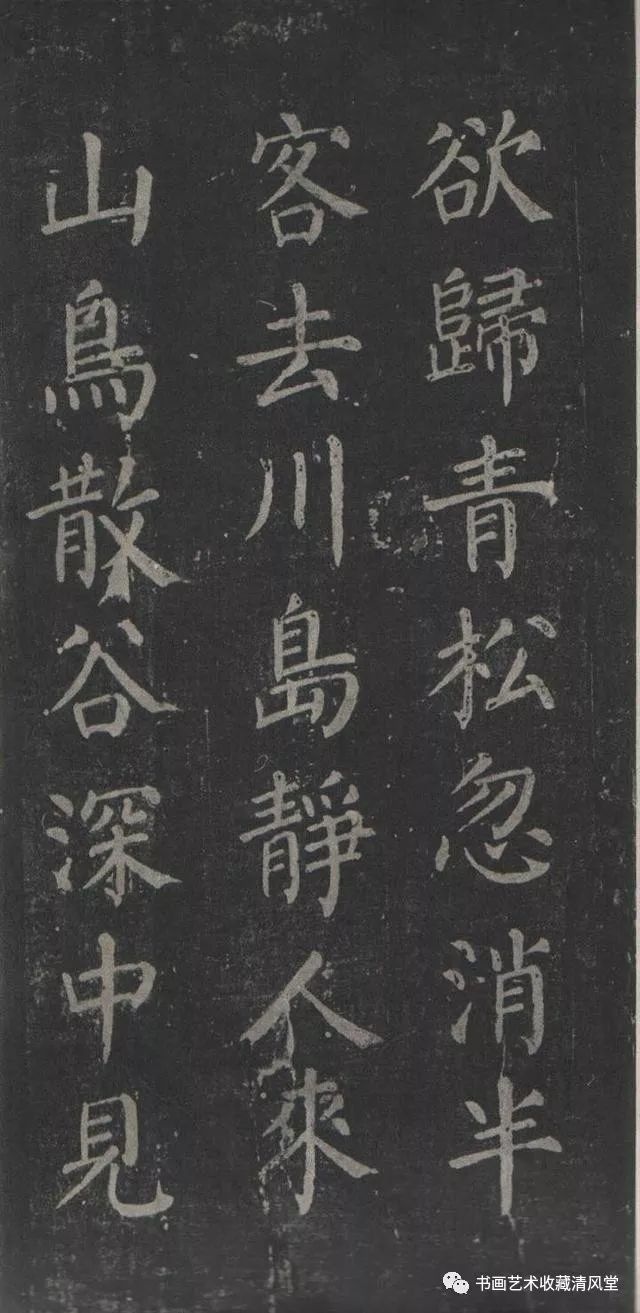 欲歸青松忽消半
客去川島靜人來
山鳥散谷深中見
书画艺术收藏清风堂